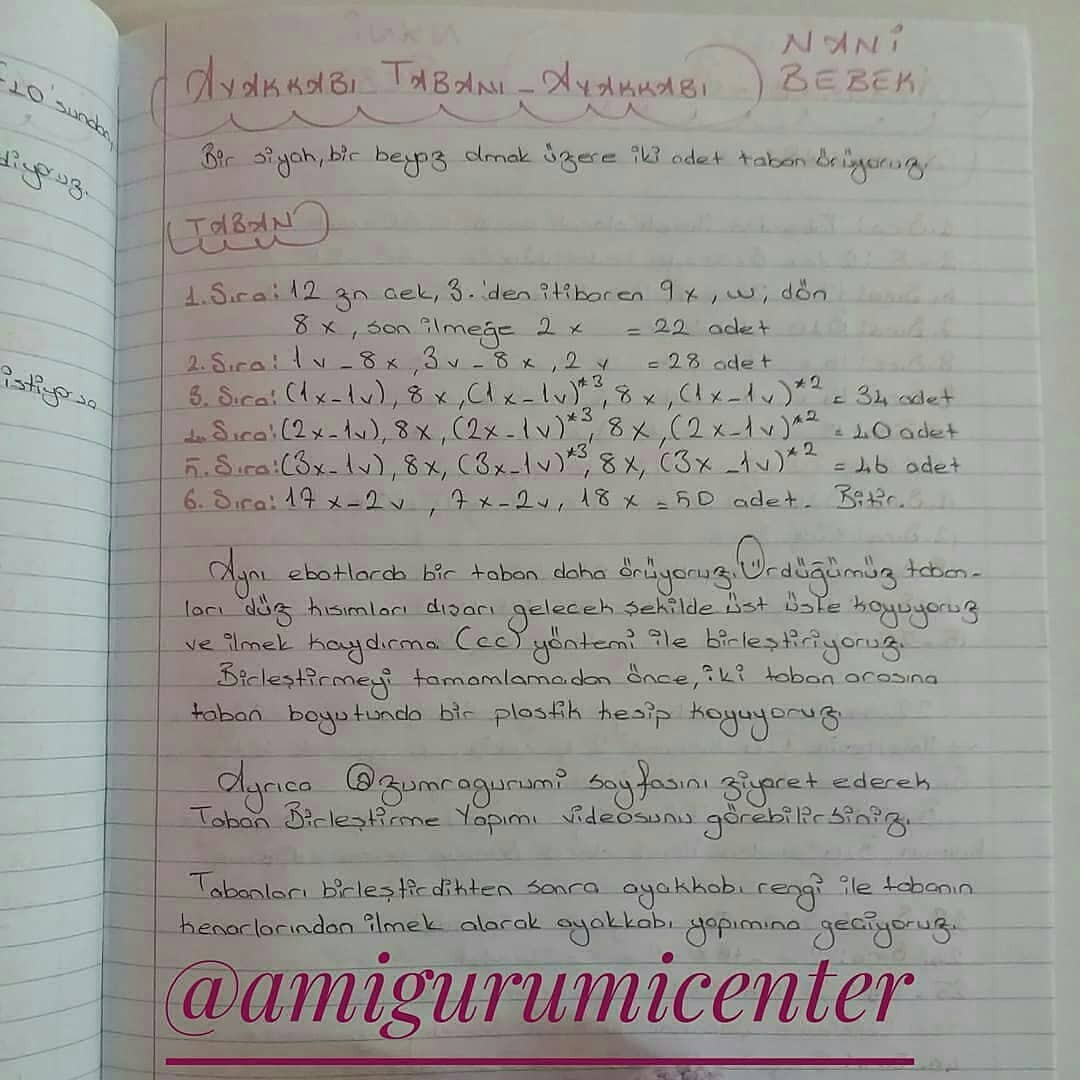 20'sundan,
diyoruz.
istiyorsa
NANİ
BEBEK
AYAKKABI TABANI - AYAKKABI
Bir siyah, bir beyaz olmak üzere iki adet taban örüyoruz.
TABAN
1. Sıra: 12 zn çek, 3.'den itibaren 9x, w, dön
8x, son ilmeğe 2x = 22 adet
2. Sıra: 1v - 8x, 3v - 8x, 2v = 28 adet
3. Sıra: (1x-1v), 8x, (1x-1v)*3, 8x, (1x-1v)*2 = 34 adet
4. Sıra: (2x-1v), 8x, (2x-1v)*3, 8x, (2x-1v)*2 = 40 adet
5. Sıra: (3x-1v), 8x, (3x-1v)*3, 8x, (3x-1v)*2 = 46 adet
6. Sıra: 17x-2v, 7x-2v, 18x = 50 adet. Bitir.
Aynı ebatlarda bir taban daha örüyoruz. Ördüğümüz taban-
ları düz kısımları dışarı gelecek şekilde üst üste koyuyoruz
ve ilmek kaydırma (cc) yöntemi ile birleştiriyoruz.
Birleştirmeyi tamamlamadan önce, iki taban arasına
taban boyutunda bir plastik kesip koyuyoruz.
Ayrıca @zumragurumi sayfasını ziyaret ederek
Taban Birleştirme Yapımı videosunu görebilirsiniz.
Tabanları birleştirdikten sonra ayakkabı rengi ile tabanın
kenarlarından ilmek alarak ayakkabı yapımına geçiyoruz.
@amigurumicenter